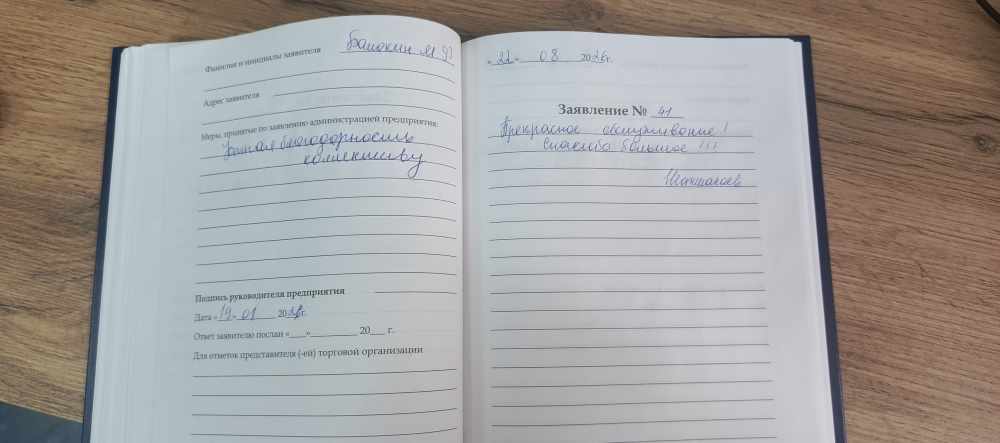 Фамилия и инициалы заявителя
Адрес заявителя
Меры, принятые по заявлению администрацией предприятия:
Устная благодарность
коллективу
Подпись руководителя предприятия
Дата «19» 01 20 г.
Ответ заявителю послан «___»__________ 20___ г.
Для отметок представителя (-ей) торговой организации
«22» 08 20 г.
Заявление № 41
Прекрасное обслуживание!
Спасибо большое !!!